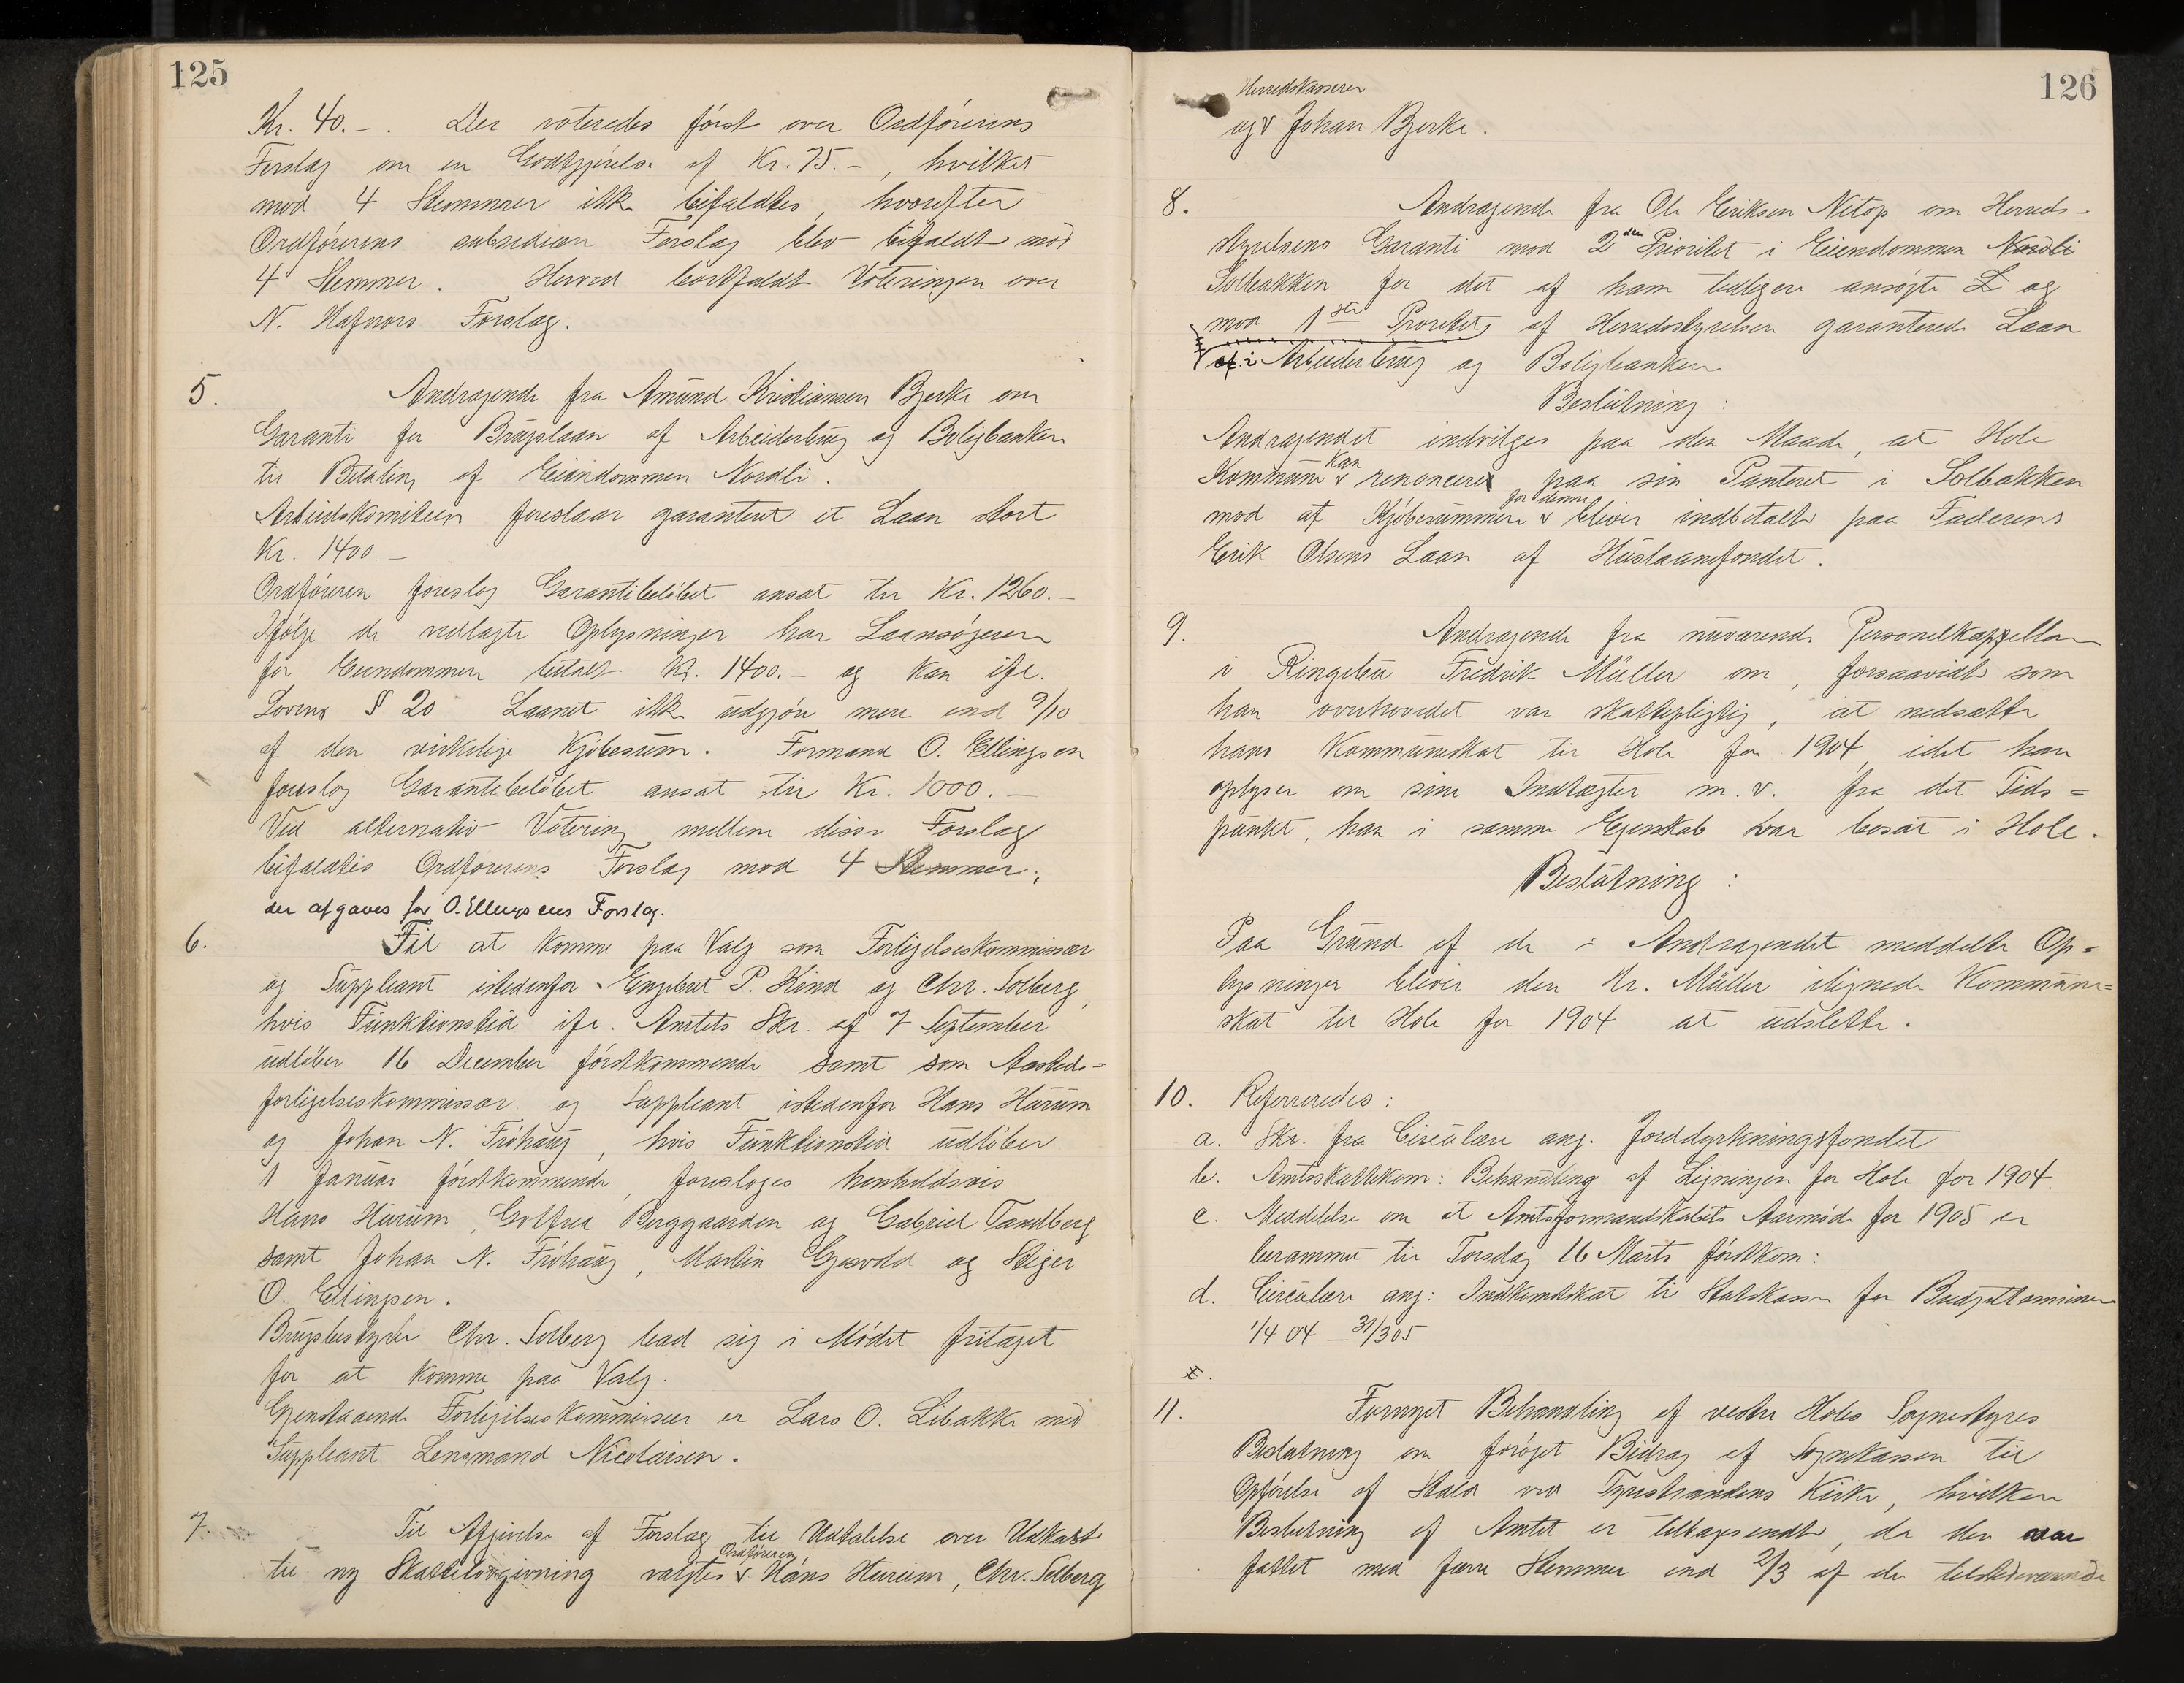 125
Kr. 40.-. Der voteredes först over Ordförerens
Forslag om en Godtgjörelse af Kr. 75.-, hvilket
mod 4 Stemmer ikke bifaldtes, hvorefter
Ordförerens subsidiære Forslag blev bifaldt mod
4 Stemmer. Herved bortfaldt Voteringen over
N. Hafnors Forslag.
5. Andragende fra Amund Kristiansen Bjerke om
Garanti for Brugslaan af Arbeiderbrug og Boligbanken
til Betaling af Eiendommen Nordli.
Arbeidskomiteen foreslaar garanteret et Laan stort
Kr. 1400.-
Ordföreren foreslog Garantibelöbet ansat til Kr. 1260.-
Ifölge de vedlagte Oplysninger har Laansögeren
for Eiendommen betalt Kr. 1400.- og kan ifl.
Lovens § 20 Laanet ikke udgjöre mere end 9/10
af den virkelige Kjöbesum. Formand O. Ellingsen
foreslog Garantibelöbet ansat til Kr. 1000.-
Ved alternativ Votering mellem disse Forslag
bifaldtes Ordförerens Forslag mod 4 Stemmer,
der afgaves for O. Ellingsens Forslag.
6. Til at komme paa Valg som Forligelseskommissær
og Suppleant istedenfor Engebret P. Rind og Chr. Solberg,
hvis Funktionstid ifl. Amtets Skr. af 7 September
udlöber 16 December förstkommende samt som Aasteds=
forligelseskommissær og Suppleant istedenfor Hans Hurum
og Johan N. Fröhaug, hvis Funktionstid udlöber
1 Januar förstkommende, foresloges henholdsvis
Hans Hurum, Golfred Borggaarden og Gabriel Tandberg
samt Johan N. Fröhaug, Martin Gjesvold og Helger
O. Ellingsen.
Brugsbestyrer Chr. Solberg bad sig i Mödet fritaget
for at komme paa Valg.
Gjenstaaende Forligelseskommissær er Lars O. Libakke med
Suppleant Lensmand Nicolaisen.
7. Til Afgivelse af Forslag til Udtalelse over Udkast
til ny Skattelovgivning valgtes Ordföreren Hans Hurum, Chr. Solberg
126
og Herredskasserer Johan Bjerke.
8. Andragende fra Ole Eriksen Netop om Herreds-
styrelsens Garanti mod 2den Prioritet i Eiendommen Nordli
Solbakken for det af ham tidligere ansögte L og
mod 1ste Prioritet af Herredsstyrelsen garanterede Laan
af i Arbeiderbrug og Boligbanken
Beslutning:
Andragendet indvilges paa den Maade, at Hole
Kommune kan renoncere paa sin Panteret i Solbakken
mod at Kjöbesummen for denne bliver indbetalt paa Faderens
Erik Olsens Laan af Huslaansfondet.
9. Andragende fra nuværende Personelkappellan
i Ringebu Fredrik Müller om, forsaavidt som
han overhovedet var skattepligtig, at nedsætte
hans Kommuneskat til Hole for 1904, idet han
oplyser om sine Indtægter m.v. fra det Tids=
punkt, han i samme Egenskab var bosat i Hole.
Beslutning:
Paa Grund af de i Andragendet meddelte Op=
lysninger bliver den Hr. Müller ilignede Kommune=
skat til Hole for 1904 at udslette.
10. Refereredes:
a. Skr. fra Circulære ang. Jorddyrkningsfondet
b. Amtsskattekom: Behandling af Ligningen for Hole for 1904.
c. Meddelelse om at Amtsformandskabets Aarmöde for 1905 er
berammet til Torsdag 16 Marts förstkom:
d. Circulære ang: Indkomstskat til Statskassen for Budgetterminen
1/4 04 – 31/3 05
11. Fornyet Behandling af vestre Holes Sognestyres
Beslutning om foröget Bidrag af Sognekassen til
Opförelse af Stald ved Tyristrandens Kirke, hvilken
Beslutning af Amtet er tilbagesendt, da den var
fattet med færre Stemmer end 2/3 af de tilstedeværende